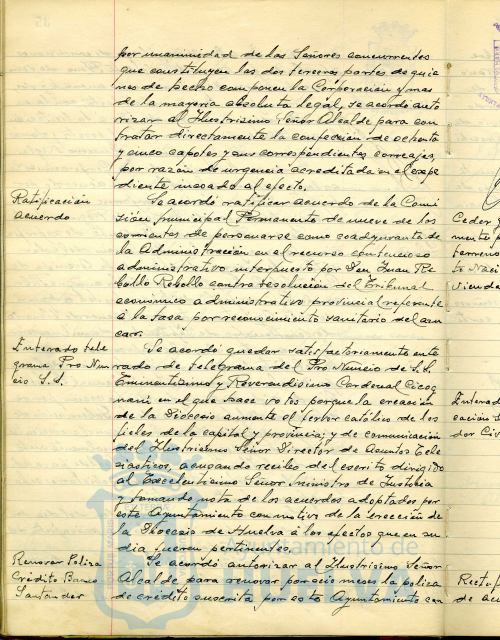 por unanimidad de los Señores concurrentes
que constituyen las dos terceras partes de quie
nes de hecho componen la Corporación y mas
de la mayoria absoluta legal, se acordo auto
rizar al Ilustrisimo Señor Alcalde para con
tratar directamente la confección de ochenta
y cinco capotes y sus correspondientes correajes,
por razón de urgencia acreditada en el expe
diente incoado al efecto.
Ratificación
acuerdo
Se acordó ratificar acuerdo de la Comi
sión municipal Permanente de nueve de los
corrientes de personarse como coadyuvante de
la Administración en el recurso contencioso
administrativo interpuesto por Don Juan Re
bollo Rebollo contra resolución del Tribunal
económico administrativo provincial referente
á la tasa por reconocimiento sanitario del
Enterado tele
grama Pro Nun
cio S.S.
Se acordó quedar satisfactoriamente ente
rado de telegrama del Pro Nuncio de S.S.
Eminentisimo y Reverendisimo Cardenal Cicog
nani en el que hace votos porque la creación
de la Diócesis aumente el fervor católico de los
fieles de la capital y provincia; y de comunicación
del Ilustrisimo Señor Director de Asuntos Ecle
siasticos, acusando recibo del escrito dirigido
al Excelentisimo Señor Ministro de Justicia
y tomando nota de los acuerdos adoptados por
este Ayuntamiento con motivo de la erección de
la Diócesis de Huelva á los efectos que en su
dia fueren pertinentes.
Renovar Poliza
Crédito Banco
Santander
Se acordó autorizar al Ilustrisimo Señor
Alcalde para renovar por seis meses la poliza
de crédito suscrita por este Ayuntamiento con
Ceder
terreno
to Naci
Vienda
Enterad
cación
dor Civ
de acu
Ayuntamiento de